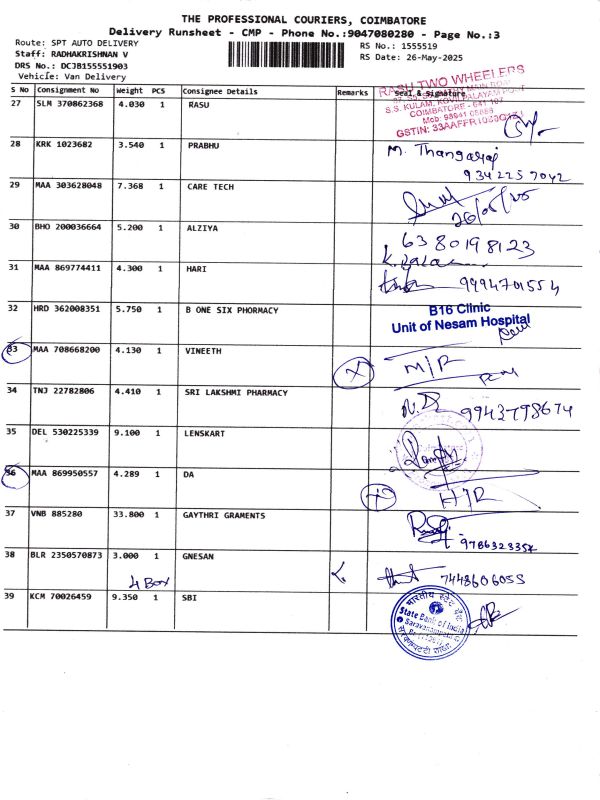 THE PROFESSIONAL COURIERS, COIMBATORE
Delivery Runsheet - CMP - Phone No.:9047080280 - Page No.:3
Route: SPT AUTO DELIVERY
RS No.: 1555519
Staff: RADHAKRISHNAN V
RS Date: 26-May-2025
DRS No.: DCJB155551903
Vehicle: Van Delivery
S No Consignment No Weight PCS Consignee Details Remarks Seal & Signature
RASU TWO WHEELERS
27 SLM 370862368 4.030 1 RASU
S.S. KULAM, KOVILPALAYAM POST
COIMBATORE - 641 107
GSTIN: 33AAFFR1023G1Z1
28 KRK 1023682 3.540 1 PRABHU
M. Thangaraj
9342257042
29 MAA 303628048 7.368 1 CARE TECH
26/05/25
30 BHO 200036664 5.200 1 ALZIYA
6380198123
31 MAA 869774411 4.300 1 HARI
9994701554
32 HRD 362008351 5.750 1 B ONE SIX PHORMACY
B16 Clinic
Unit of Nesam Hospital
33 MAA 708668200 4.130 1 VINEETH
X
M/R
34 TNJ 22782806 4.410 1 SRI LAKSHMI PHARMACY
9943798674
35 DEL 530225339 9.100 1 LENSKART
36 MAA 869950557 4.289 1 DA
X
37 VNB 885280 33.800 1 GAYTHRI GRAMENTS
9786323357
38 BLR 2350570873 3.000 1 GNESAN
4 Box
7448606055
39 KCM 70026459 9.350 1 SBI
भारतीय स्टेट बैंक
State Bank of India